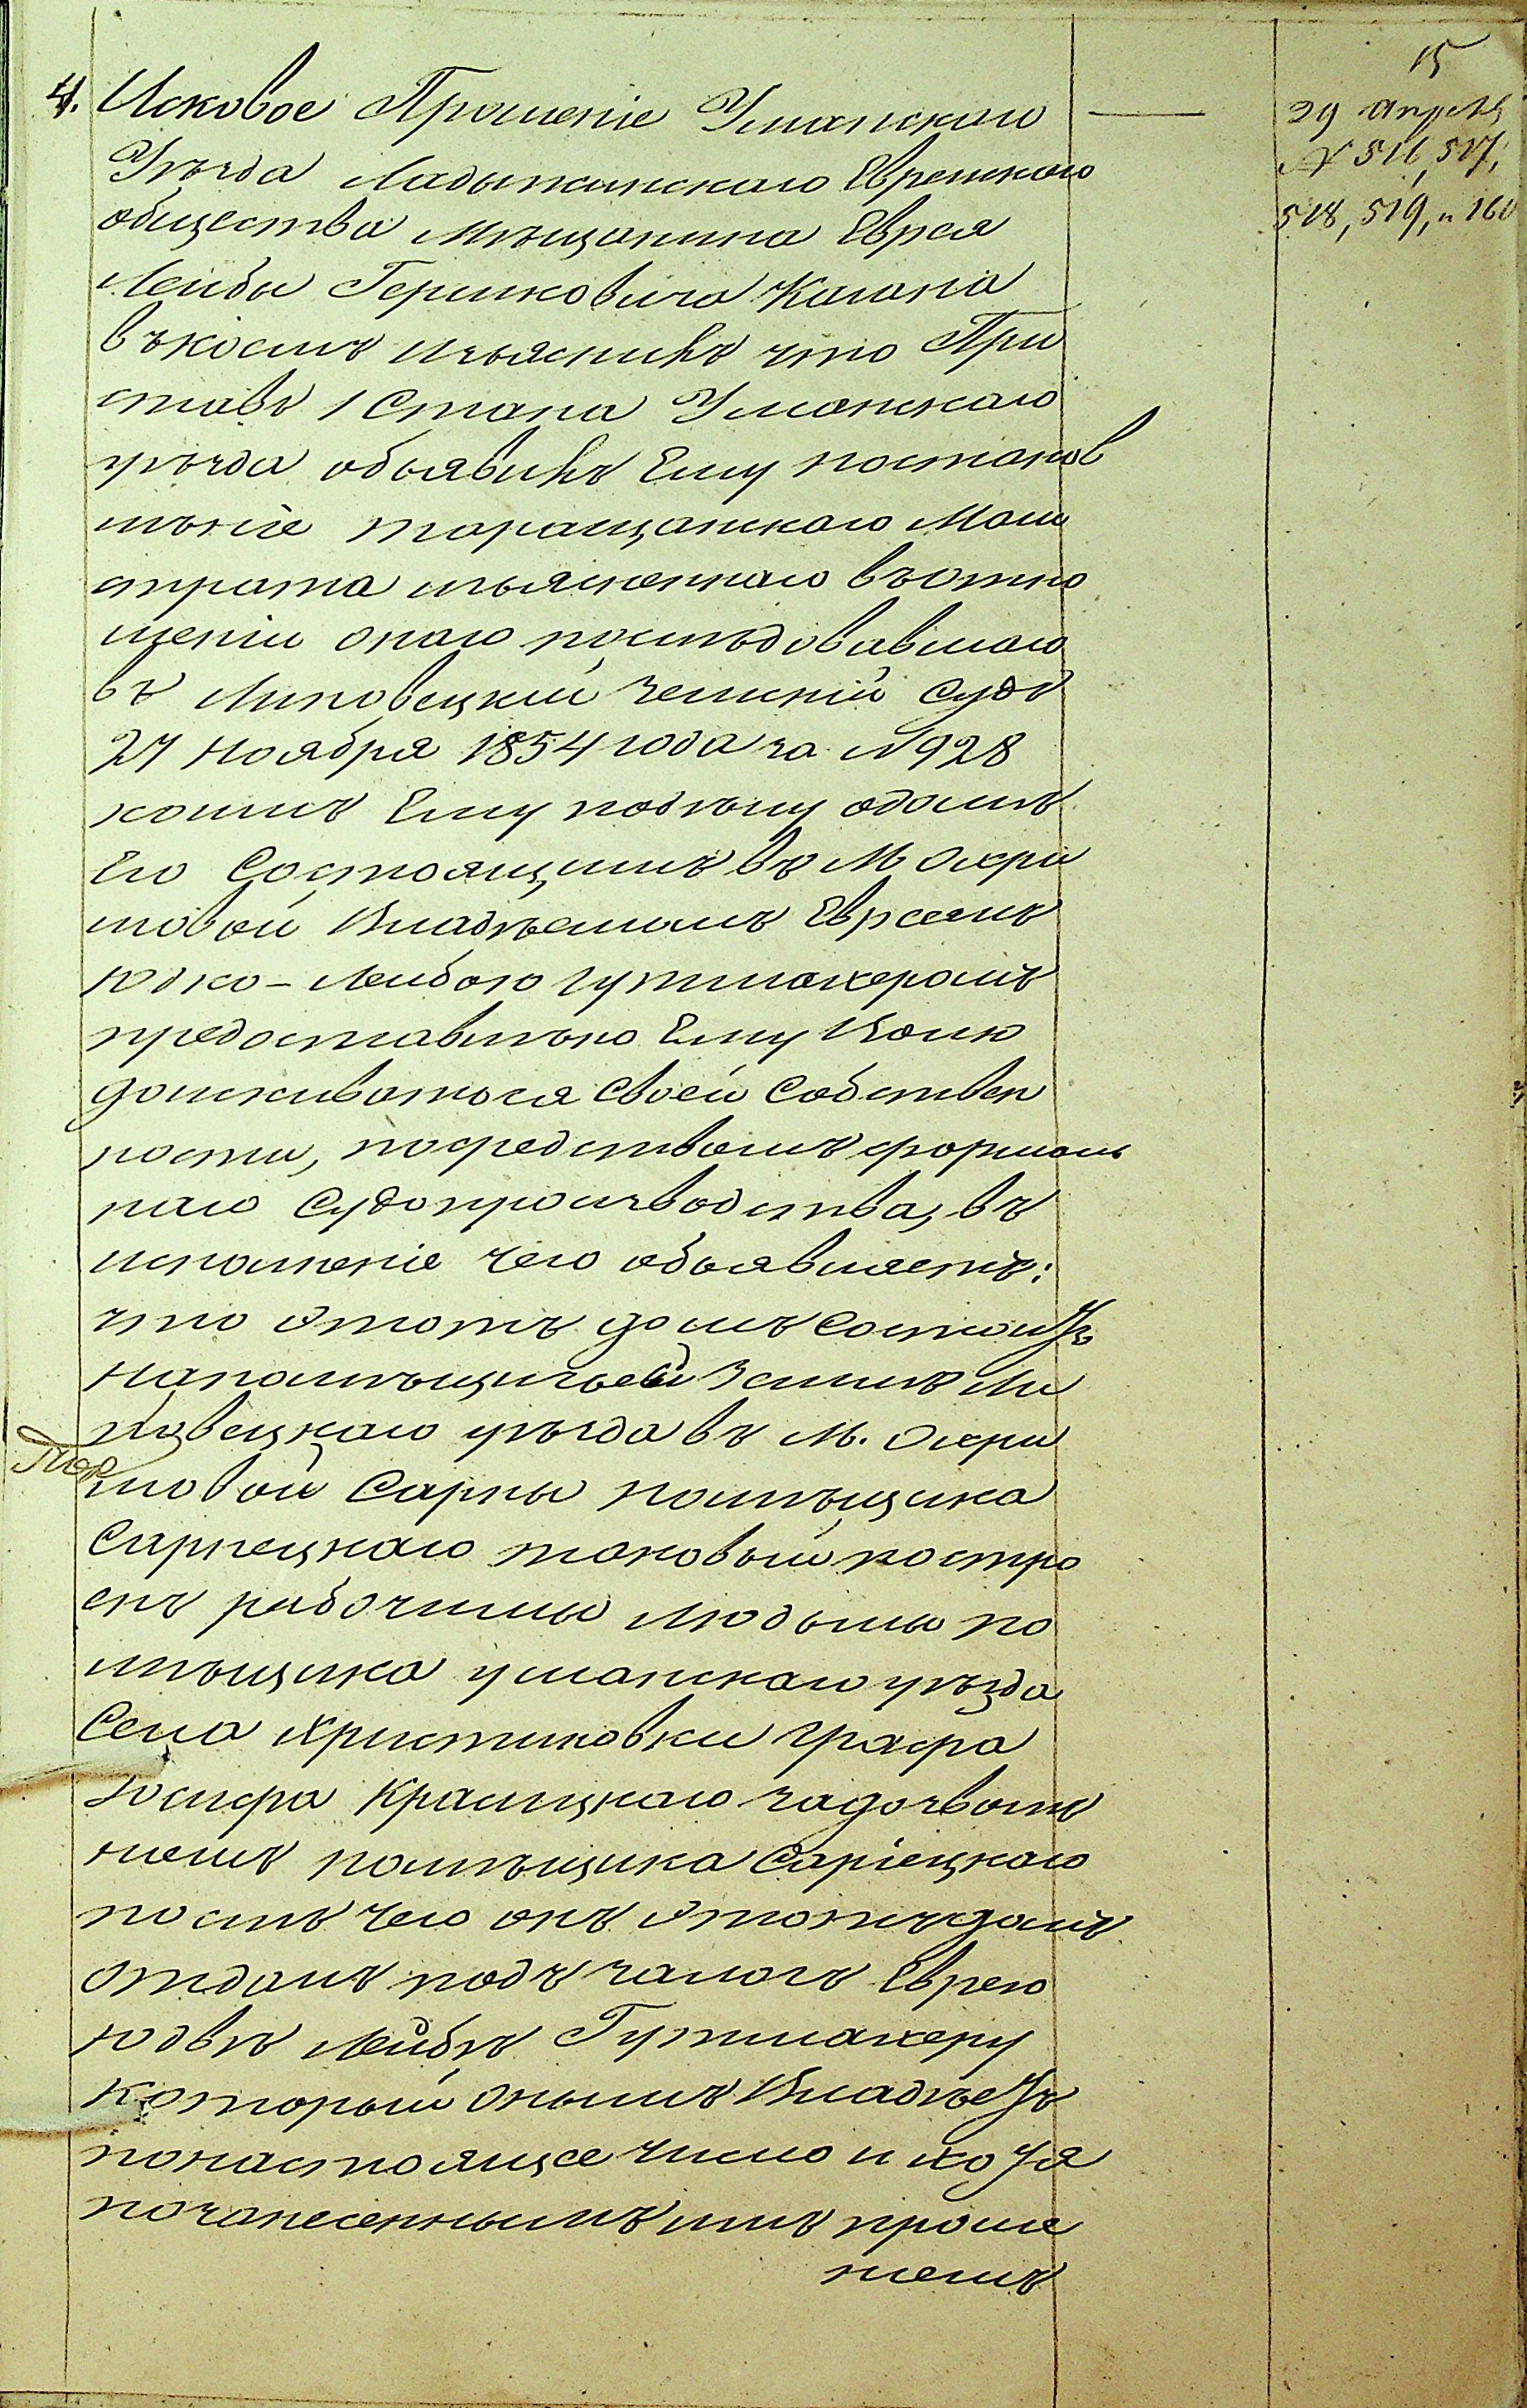 4. Исковое Прошеніе Уманскаго
Уѣзда Ладыжинскаго Еврейскаго
общества Мѣщанина Еврея
Лейбы Гершковича Кагана
въкоемъ изъяснилъ что При
ставъ 1 Стана Уманскаго
уѣзда объявилъ Ему постанов
лѣніе таращанскаго Маги
страта изъясненнаго въотно
шеніи онаго послѣдовавшаго
въ Липовецкій Земскій Судъ
27 Ноября 1854 года за №928
коимъ Ему поделу одомѣ
Его Состоящимъ въ М Охри
мовой Владѣемомъ Евреемъ
Юдко-Лейбою Гутмахеромъ
предоставлѣно Ему Волю
доискиваться Своей Собствен
ности, посредствомъ формаль
наго Судопроизводства, въ
исполненіе чего объявляетъ:
что этотъ домъ Состоитъ
напомѣщичьей Землѣ Ли
повецкаго уѣзда въ М. Охри
мовой Сарны помѣщика
Сарнецкаго таковый постро
енъ рабочими людьми по
мѣщика уманскаго уѣзда
Села Христиновки Графа
Юсифа Красицкаго задозволѣ
ніемъ помѣщика Сарнецкаго
послѣ чего онъ этотъ домъ
отдалъ подъ залогъ Еврею
Юдвѣ Лейбѣ Гутмахеру
который онымъ Владѣетъ
понастоящее число и хотя
позанесеннымъ имъ проше
ніемъ
15
29 апреля
№ 516, 517,
518, 519, и 160